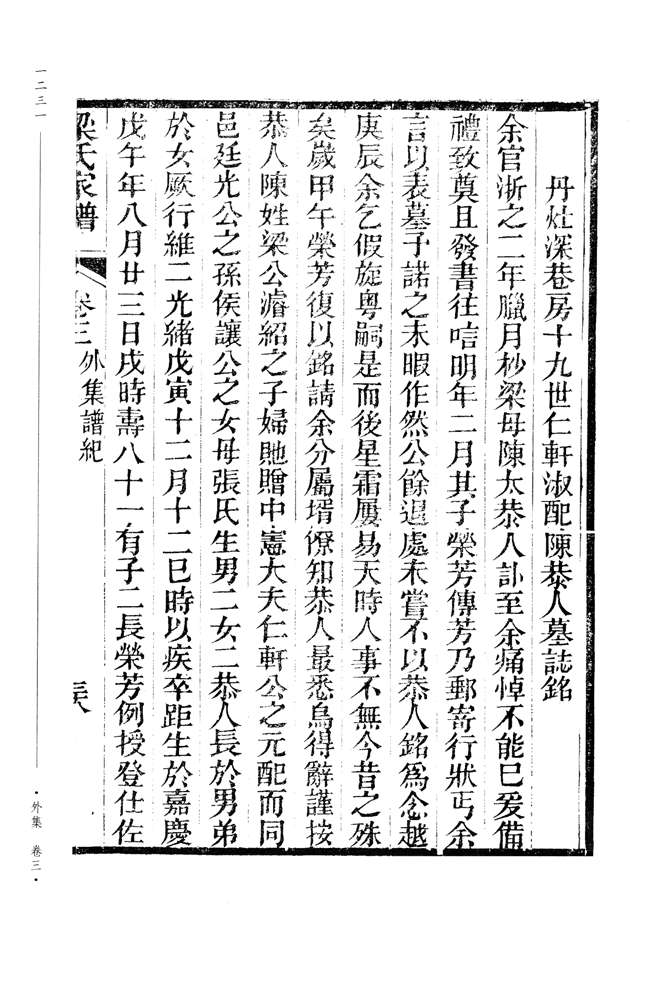 丹灶深巷房十九世仁軒淑配陳恭人墓誌銘
余官浙之二年臘月杪梁母陳太恭人訃至余痛悼不能巳爰備
禮致奠且發書往唁明年二月其子榮芳傳芳乃郵寄行狀丐余
言以表墓予諾之未暇作然公餘退處未嘗不以恭人銘爲念越
庚辰余乞假旋粵嗣是而後星霜屢易天時人事不無今昔之殊
矣歲甲午榮芳復以銘請余分屬壻僚知恭人最悉烏得辭謹按
恭人陳姓梁公濬紹之子婦貤贈中憲大夫仁軒公之元配而同
邑廷光公之孫侯讓公之女母張氏生男二女二恭人長於男弟
於女厥行維二光緒戊寅十二月十二巳時以疾卒距生於嘉慶
戊午年八月廿三日戌時壽八十一有子二長榮芳例授登仕佐
梁氏家譜 卷三 外集譜紀 三六
一二三一
·外集 卷三·